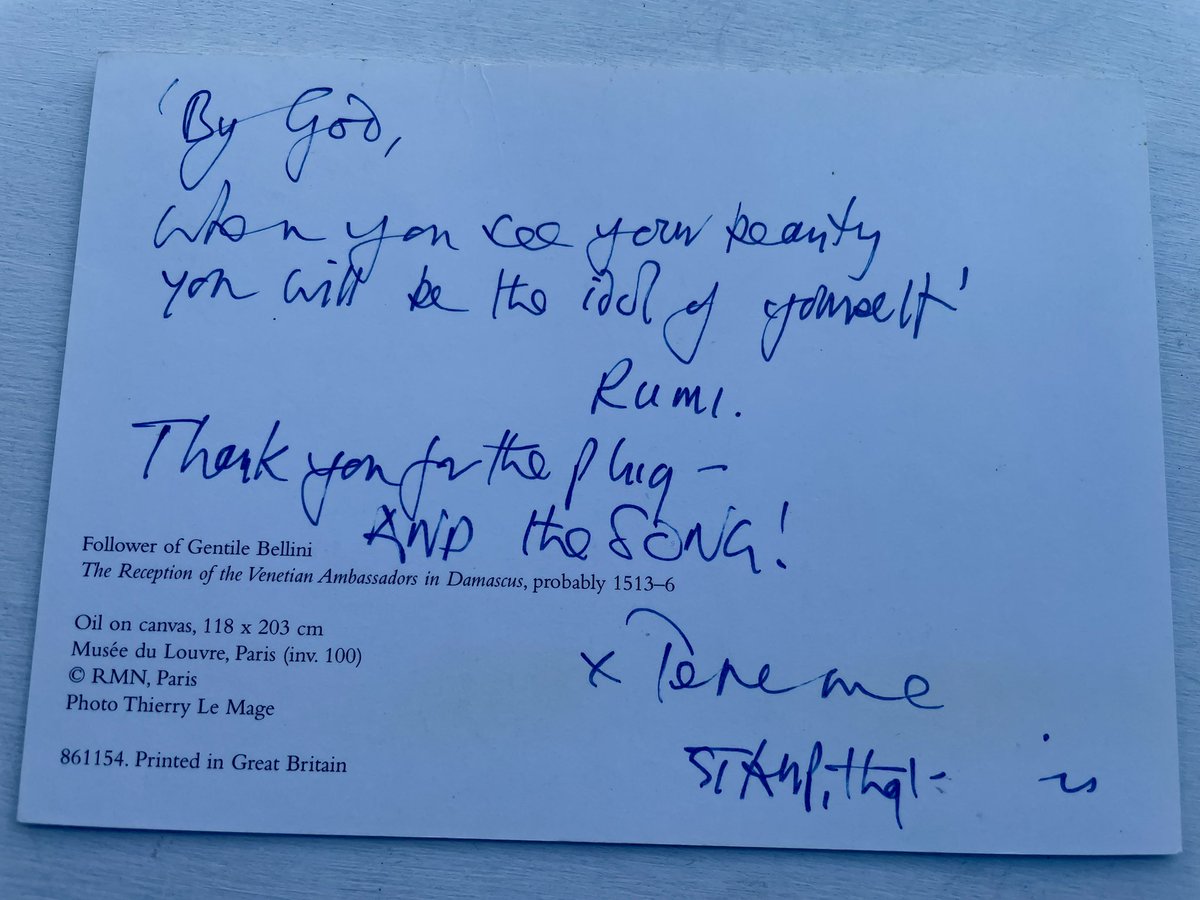 'By God,
when you see your beauty
you will be the idol of yourself'
Rumi.
Thank you for the plug –
AND the SONG!
Follower of Gentile Bellini
The Reception of the Venetian Ambassadors in Damascus, probably 1513–6
Oil on canvas, 118 x 203 cm
Musée du Louvre, Paris (inv. 100)
© RMN, Paris
Photo Thierry Le Mage
x Terence
STAMP, that is
861154. Printed in Great Britain